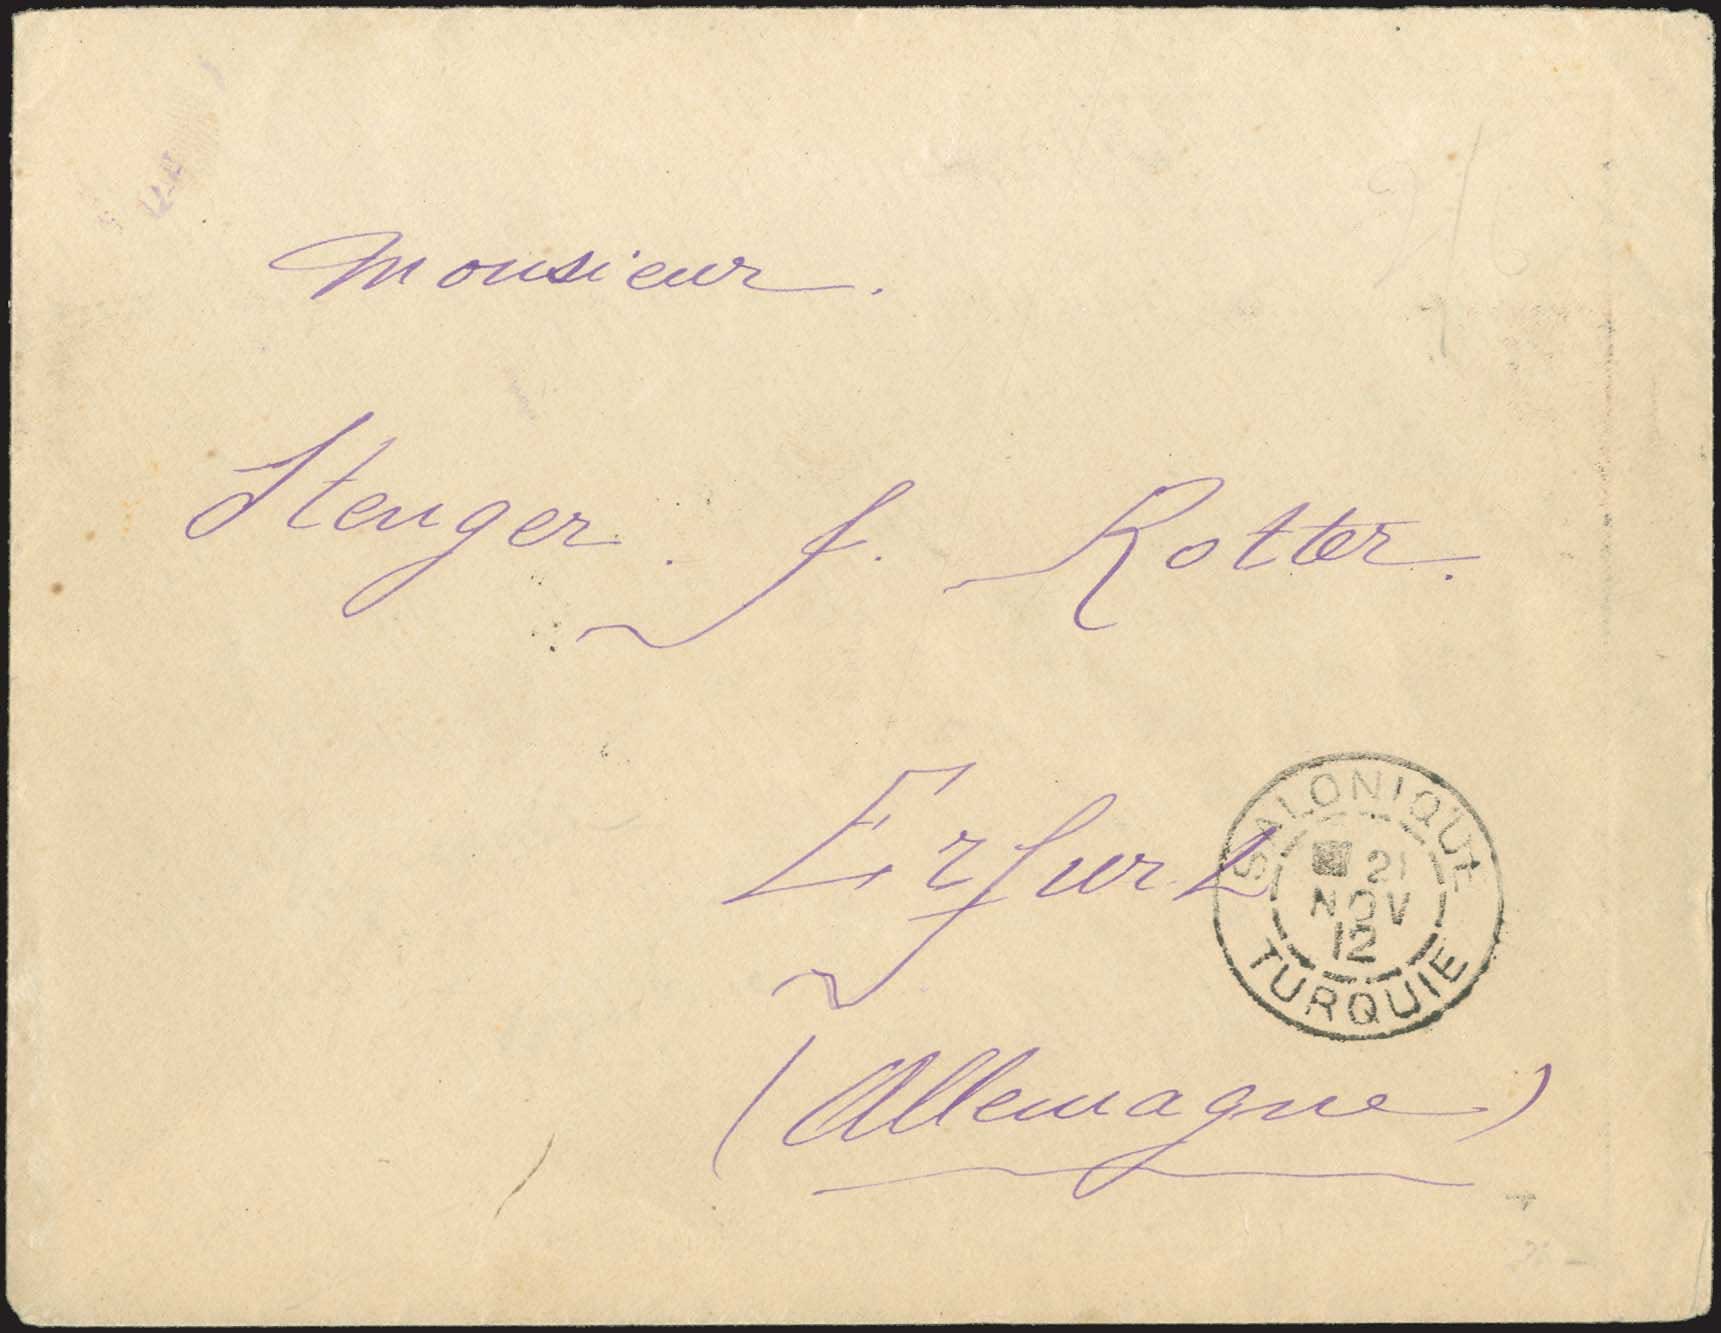 Monsieur.
Stenger. f. Rotter.
Erfurt
(Allemagne)
SALONIQUE
21
NOV
12
TURQUIE